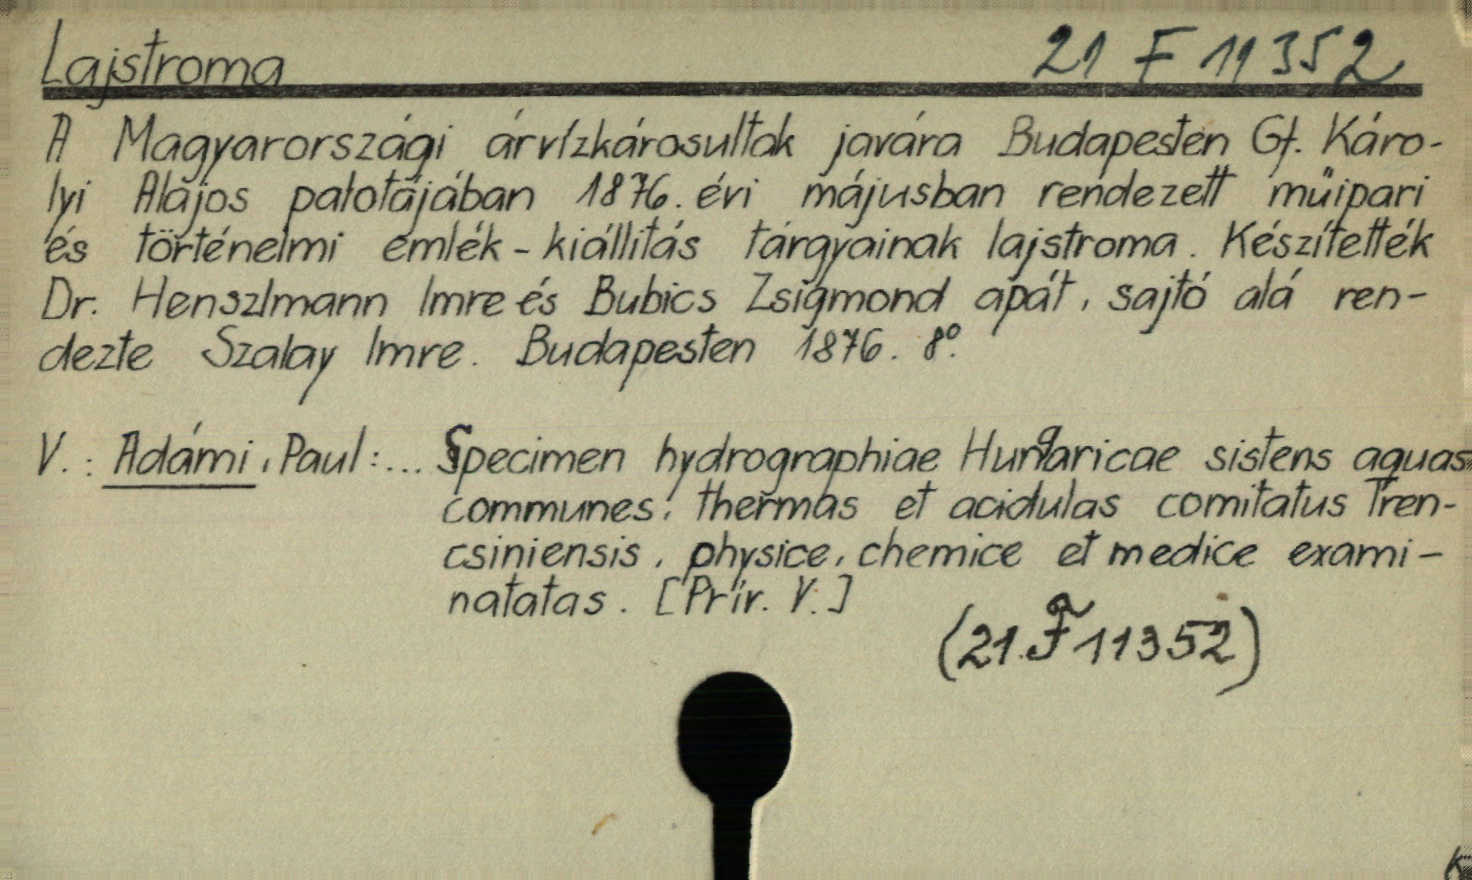 Lajstroma 21 F 11352
A Magyarországi árvízkárosultak javára Budapesten Gf. Káro-
lyi Alajos palotájában 1876. évi májusban rendezett műipari
és történelmi emlék-kiállitás tárgyainak lajstroma. Készítették
Dr. Henszlmann Imre és Bubics Zsigmond apát, sajtó alá ren-
dezte Szalay Imre. Budapesten 1876. 8º.
V.: Adámi, Paul:... Specimen hydrographiae Hungaricae sistens aquas
communes, thermas et acidulas comitatus Tren-
csiniensis, physice, chemice et medice exami-
natatas. [Prír. V.]
(21.F 11352)
K